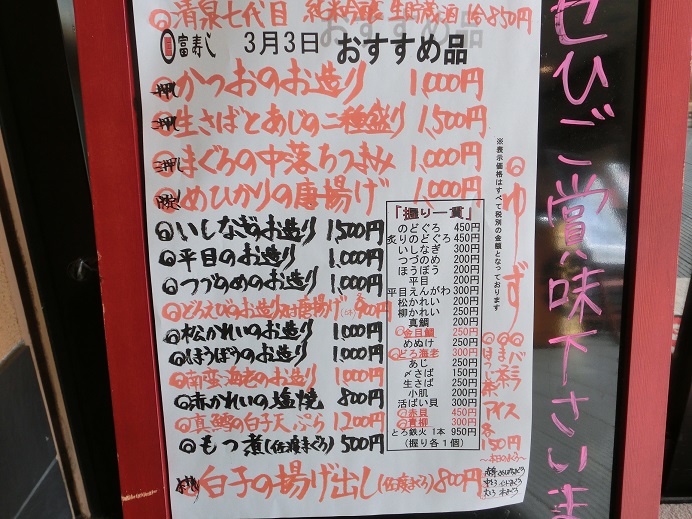 清泉七代目 純米吟醸 生貯蔵酒 850円
富寿し 3月3日 おすすめ品
かつおのお造り 1,000円
生さばとあじの二種盛り 1,500円
まぐろの中落ちつまみ 1,000円
めひかりの唐揚げ 1,000円
◎いしなぎのお造り 1,500円
◎平目のお造り 1,000円
◎つづのめのお造り 1,000円
◎どろえびのお造り 唐揚げ 900円
◎松かれいのお造り 1,000円
◎ほうぼうのお造り 1,000円
◎南蛮海老のお造り 1,000円
◎赤かれいの塩焼 800円
◎真鱈の白子天ぷら 1200円
◎もつ煮(佐渡まぐろ) 500円
◎白子の揚げ出し(佐渡まぐろ) 800円
「握り一貫」
のどぐろ 450円
炙りのどぐろ 450円
いしなぎ 300円
つづのめ 200円
ほうぼう 200円
平目 200円
平目えんがわ 300円
松かれい 200円
柳かれい 250円
真鯛 200円
◎金目鯛 250円
めぬけ 250円
◎どろ海老 300円
あじ 250円
〆さば 150円
生さば 250円
小肌 200円
活ばい貝 300円
◎赤貝 450円
◎青柳 300円
とろ鉄火 1本 950円
(握り各1個)
※表示価格はすべて税別の金額となっております
◎ゆず
◎バニラ
◎ほうじ茶
アイス
各
150円
〜本日のまぐろ〜
ぜひご賞味下さいま